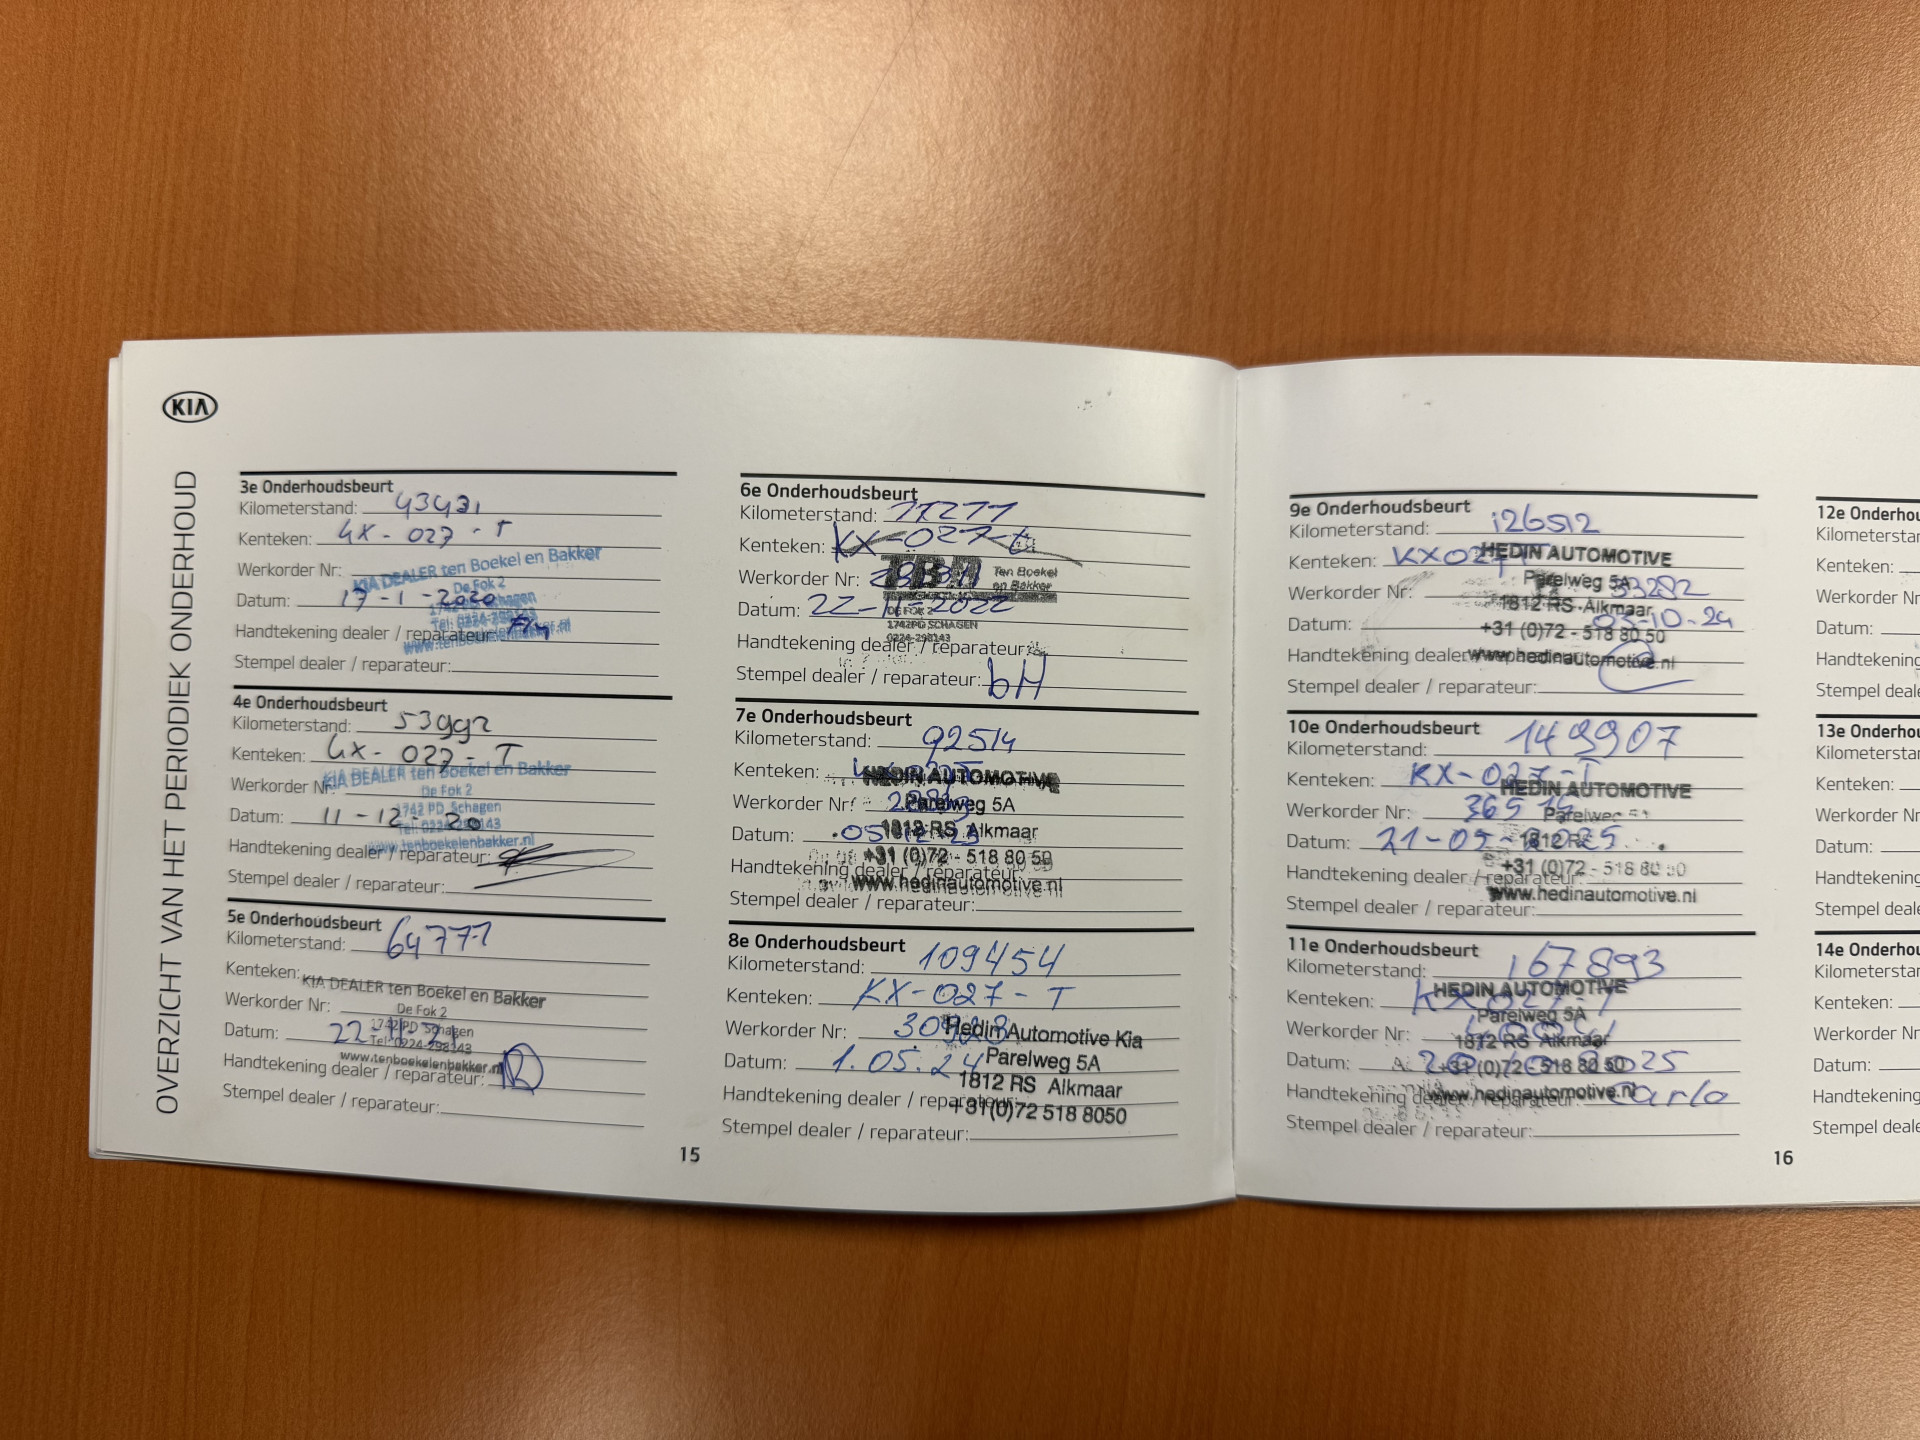 KIA
OVERZICHT VAN HET PERIODIEK ONDERHOUD
3e Onderhoudsbeurt
Kilometerstand: 43431
Kenteken: GX-027-T
Werkorder Nr:
KIA DEALER ten Boekel en Bakker
De Fok 2
Datum: 17-1-2020
1742 PD Schagen
Tel: 0224-298143
Handtekening dealer / reparateur:
www.tenboekelenbakker.nl
Stempel dealer / reparateur:
4e Onderhoudsbeurt
Kilometerstand: 53992
Kenteken: GX-027-T
KIA DEALER ten Boekel en Bakker
Werkorder Nr:
De Fok 2
1742 PD Schagen
Datum: 11-12-20
Tel: 0224-298143
www.tenboekelenbakker.nl
Handtekening dealer / reparateur:
Stempel dealer / reparateur:
5e Onderhoudsbeurt
Kilometerstand: 64771
Kenteken:
KIA DEALER ten Boekel en Bakker
Werkorder Nr:
De Fok 2
1742 PD Schagen
Datum: 22-11-21
Tel: 0224-298143
www.tenboekelenbakker.nl
Handtekening dealer / reparateur:
Stempel dealer / reparateur:
6e Onderhoudsbeurt
Kilometerstand: 77277
Kenteken: KX-027-t
Werkorder Nr:
TBA Ten Boekel
en Bakker
Datum: 22-11-2022
DE FOK 2
1742PD SCHAGEN
0224-298143
Handtekening dealer / reparateur:
Stempel dealer / reparateur: bH
7e Onderhoudsbeurt
Kilometerstand: 92514
Kenteken:
HEDIN AUTOMOTIVE
Werkorder Nr:
Parelweg 5A
Datum:
1812 RS Alkmaar
+31 (0)72 - 518 80 50
Handtekening dealer / reparateur:
www.hedinautomotive.nl
Stempel dealer / reparateur:
8e Onderhoudsbeurt
Kilometerstand: 109454
Kenteken: KX-027-T
Werkorder Nr: 30928
Hedin Automotive Kia
Datum: 1.05.24
Parelweg 5A
1812 RS Alkmaar
Handtekening dealer / reparateur:
+31(0)72 518 8050
Stempel dealer / reparateur:
15
9e Onderhoudsbeurt
Kilometerstand: 126512
Kenteken: KX027T
HEDIN AUTOMOTIVE
Parelweg 5A
Werkorder Nr: 33282
1812 RS Alkmaar
Datum: 03-10-24
+31 (0)72 - 518 80 50
Handtekening dealer / reparateur:
www.hedinautomotive.nl
Stempel dealer / reparateur:
10e Onderhoudsbeurt
Kilometerstand: 149907
Kenteken: KX-027-T
HEDIN AUTOMOTIVE
Werkorder Nr:
Parelweg 5A
Datum: 21-05-2025
1812 RS
+31 (0)72 - 518 80 50
Handtekening dealer / reparateur:
www.hedinautomotive.nl
Stempel dealer / reparateur:
11e Onderhoudsbeurt
Kilometerstand: 167893
Kenteken: KX-027-T
HEDIN AUTOMOTIVE
Parelweg 5A
Werkorder Nr:
1812 RS Alkmaar
Datum: 20-10-2025
+31 (0)72 - 518 80 50
Handtekening dealer / reparateur: Carlo
www.hedinautomotive.nl
Stempel dealer / reparateur:
16
12e Onderhou
Kilometerstan
Kenteken:
Werkorder Nr
Datum:
Handtekening
Stempel deale
13e Onderhou
Kilometerstan
Kenteken:
Werkorder Nr
Datum:
Handtekening
Stempel deale
14e Onderhou
Kilometerstan
Kenteken:
Werkorder Nr
Datum:
Handtekening
Stempel deale